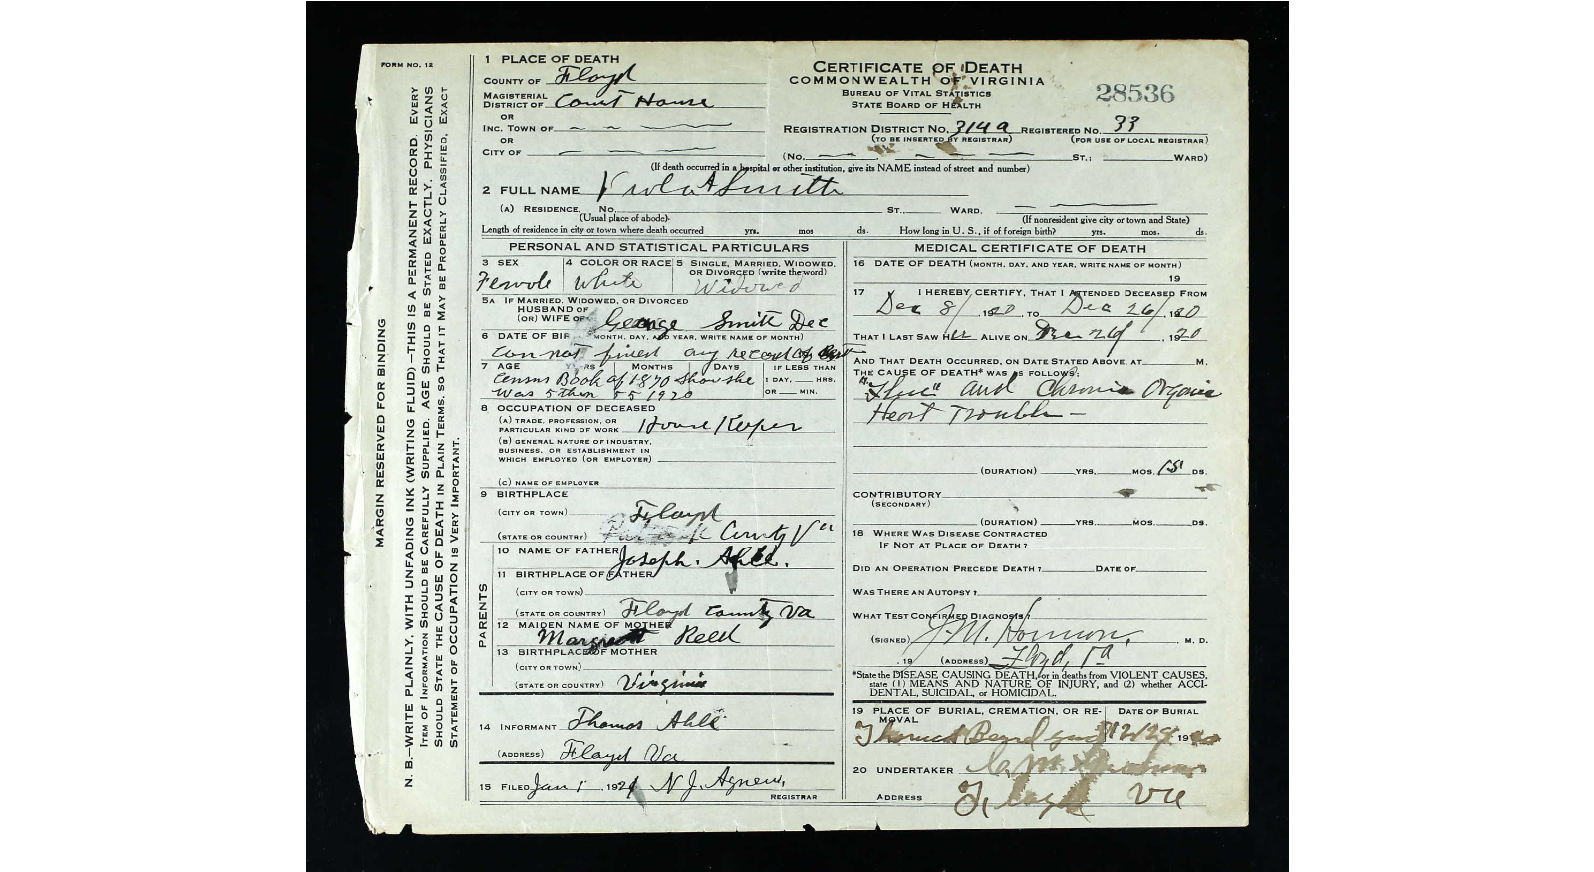 FORM NO. 12
MARGIN RESERVED FOR BINDING
N. B.—WRITE PLAINLY, WITH UNFADING INK (WRITING FLUID)—THIS IS A PERMANENT RECORD. EVERY
ITEM OF INFORMATION SHOULD BE CAREFULLY SUPPLIED. AGE SHOULD BE STATED EXACTLY. PHYSICIANS
SHOULD STATE THE CAUSE OF DEATH IN PLAIN TERMS, SO THAT IT MAY BE PROPERLY CLASSIFIED. EXACT
STATEMENT OF OCCUPATION IS VERY IMPORTANT.
1 PLACE OF DEATH
COUNTY OF Floyd
MAGISTERIAL
DISTRICT OF Court House
OR
INC. TOWN OF
OR
CITY OF
CERTIFICATE OF DEATH
COMMONWEALTH OF VIRGINIA
BUREAU OF VITAL STATISTICS
STATE BOARD OF HEALTH
28536
REGISTRATION DISTRICT NO. 314a REGISTERED NO. 33
(TO BE INSERTED BY REGISTRAR) (FOR USE OF LOCAL REGISTRAR)
(NO. ST.; WARD)
(If death occurred in a hospital or other institution, give its NAME instead of street and number)
2 FULL NAME Viola A Smith
(A) RESIDENCE. NO. ST., WARD.
(Usual place of abode) (If nonresident give city or town and State)
Length of residence in city or town where death occurred yrs. mos ds. How long in U. S., if of foreign birth? yrs. mos. ds.
PERSONAL AND STATISTICAL PARTICULARS
3 SEX 4 COLOR OR RACE 5 SINGLE, MARRIED, WIDOWED,
OR DIVORCED (write the word)
Female White Widowed
5A IF MARRIED, WIDOWED, OR DIVORCED
HUSBAND OF
(OR) WIFE OF George Smith Dec
6 DATE OF BIRTH (MONTH, DAY, AND YEAR, WRITE NAME OF MONTH)
Can not find any record of
7 AGE YEARS MONTHS DAYS IF LESS THAN
1 DAY, HRS.
OR MIN.
Census Book of 1870 Show she
was 5 then 55 1920
8 OCCUPATION OF DECEASED
(A) TRADE, PROFESSION, OR
PARTICULAR KIND OF WORK House Keeper
(B) GENERAL NATURE OF INDUSTRY,
BUSINESS, OR ESTABLISHMENT IN
WHICH EMPLOYED (OR EMPLOYER)
(C) NAME OF EMPLOYER
9 BIRTHPLACE
(CITY OR TOWN) Floyd
(STATE OR COUNTRY) County Va
PARENTS
10 NAME OF FATHER Joseph
11 BIRTHPLACE OF FATHER
(CITY OR TOWN)
(STATE OR COUNTRY) Floyd County Va
12 MAIDEN NAME OF MOTHER
Reed
13 BIRTHPLACE OF MOTHER
(CITY OR TOWN)
(STATE OR COUNTRY) Virginia
14 INFORMANT Thomas
(ADDRESS) Floyd Va
15 FILED Jan 1921 N J. Agnew,
REGISTRAR
MEDICAL CERTIFICATE OF DEATH
16 DATE OF DEATH (MONTH, DAY, AND YEAR, WRITE NAME OF MONTH)
19
17 I HEREBY CERTIFY, THAT I ATTENDED DECEASED FROM
Dec 8/, 1920 TO Dec 26/, 1920
THAT I LAST SAW HER ALIVE ON Dec , 1920
AND THAT DEATH OCCURRED, ON DATE STATED ABOVE AT M.
THE CAUSE OF DEATH* WAS AS FOLLOWS:
"Flue" and Chronic Organic
Heart Trouble —
(DURATION) YRS. MOS. 15 DS.
CONTRIBUTORY
(SECONDARY)
(DURATION) YRS. MOS. DS.
18 WHERE WAS DISEASE CONTRACTED
IF NOT AT PLACE OF DEATH?
DID AN OPERATION PRECEDE DEATH? DATE OF
WAS THERE AN AUTOPSY?
WHAT TEST CONFIRMED DIAGNOSIS?
(SIGNED) J. M. , M. D.
, 19 (ADDRESS) Floyd, Va
*State the DISEASE CAUSING DEATH, or in deaths from VIOLENT CAUSES,
state (1) MEANS AND NATURE OF INJURY, and (2) whether ACCI-
DENTAL, SUICIDAL, or HOMICIDAL.
19 PLACE OF BURIAL, CREMATION, OR RE- DATE OF BURIAL
MOVAL
19
20 UNDERTAKER
ADDRESS Floyd Va